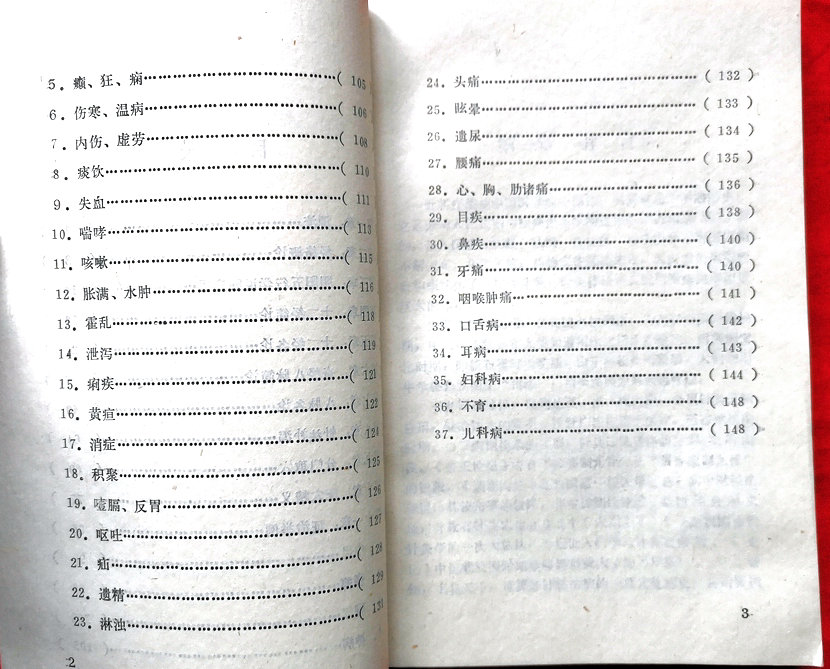 5．癫、狂、痫……………………………( 105
6．伤寒、温病……………………………( 106
7．内伤、虚劳……………………………( 108
8．痰饮……………………………………( 110
9．失血……………………………………( 111
10．喘哮…………………………………( 113
11．咳嗽…………………………………( 115
12．胀满、水肿…………………………( 116
13．霍乱…………………………………( 118
14．泄泻…………………………………( 119
15．痢疾…………………………………( 121
16．黄疸…………………………………( 122
17．消症…………………………………( 124
18．积聚…………………………………( 125
19．噎膈、反胃…………………………( 126
20．呕吐…………………………………( 127
21．疝……………………………………( 128
22．遗精…………………………………( 129
23．淋浊…………………………………( 131
2
24．头痛…………………………………( 132 )
25．眩晕…………………………………( 133 )
26．遗尿…………………………………( 134 )
27．腰痛…………………………………( 135 )
28．心、胸、肋诸痛……………………( 136 )
29．目疾…………………………………( 138 )
30．鼻疾…………………………………( 140 )
31．牙痛…………………………………( 140 )
32．咽喉肿痛……………………………( 141 )
33．口舌病………………………………( 142 )
34．耳病…………………………………( 143 )
35．妇科病………………………………( 144 )
36．不育…………………………………( 148 )
37．儿科病………………………………( 148 )
3